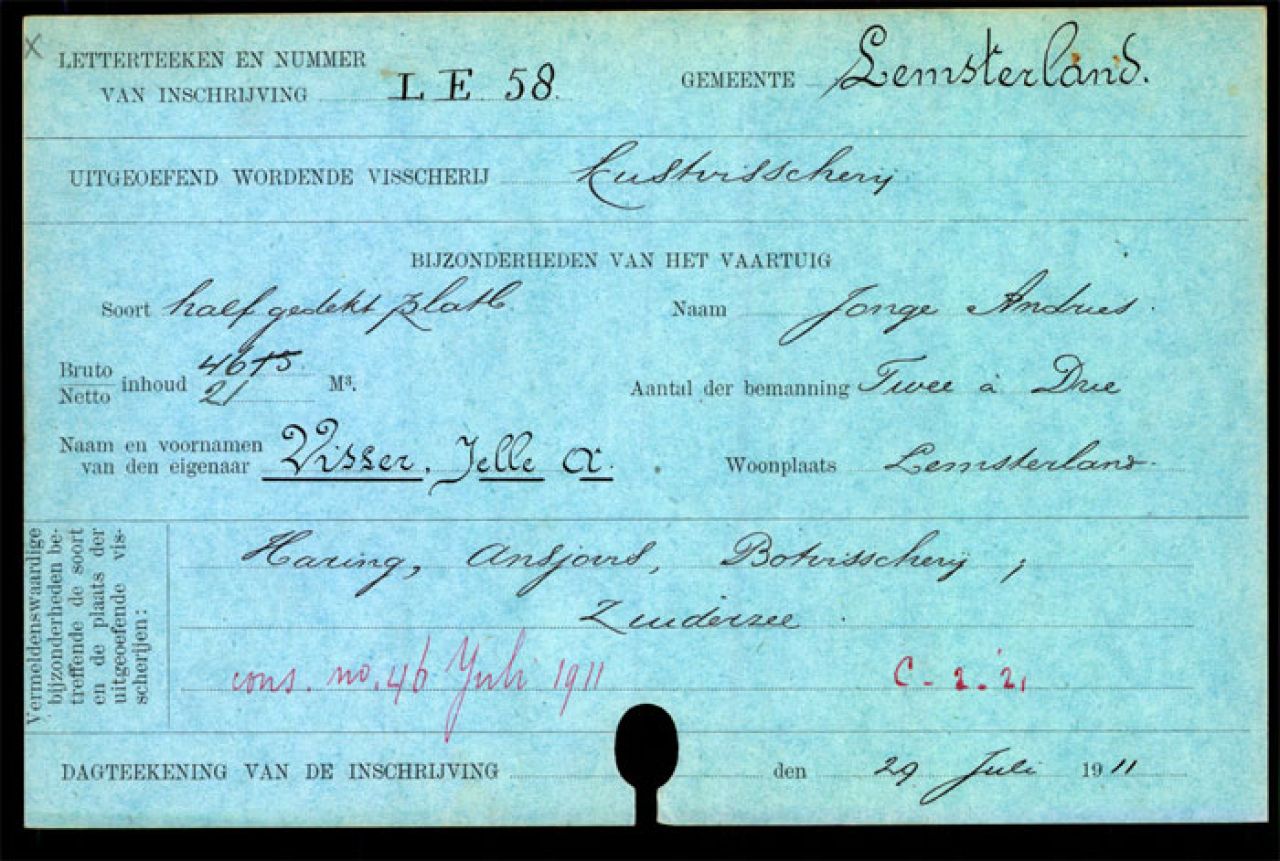 X
LETTERTEEKEN EN NUMMER
VAN INSCHRIJVING LE 58. GEMEENTE Lemsterland.
UITGEOEFEND WORDENDE VISSCHERIJ Kustvisscherij
BIJZONDERHEDEN VAN HET VAARTUIG
Soort half gedekt platb. Naam Jonge Andries.
Bruto
Netto inhoud 21 M³. Aantal der bemanning Twee à Drie
Naam en voornamen
van den eigenaar Visser, Jelle A. Woonplaats Lemsterland.
Vermeldenswaardige
bijzonderheden be-
treffende de soort
en de plaats der
uitgeoefende vis-
scherijen:
Haring, Ansjovis, Botvisscherij,
Zuiderzee.
cons. no. 46 Juli 1911 C - 2 - 2,
DAGTEEKENING VAN DE INSCHRIJVING den 29 Juli 1911